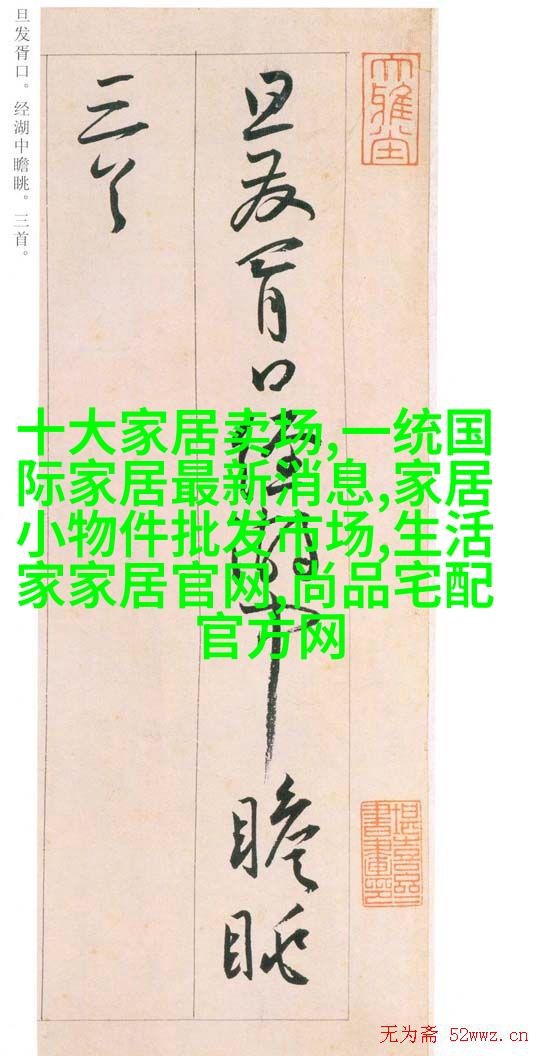 旦发胥口。经湖中瞻眺。三首。
旦发胥口经湖中瞻眺
三首
大雅室
十大家居卖场,一统国
际家居最新消息,家居
小物件批发市场,生活
家家居官网,尚品宅配
官方网
无为斋 52wwz.cn